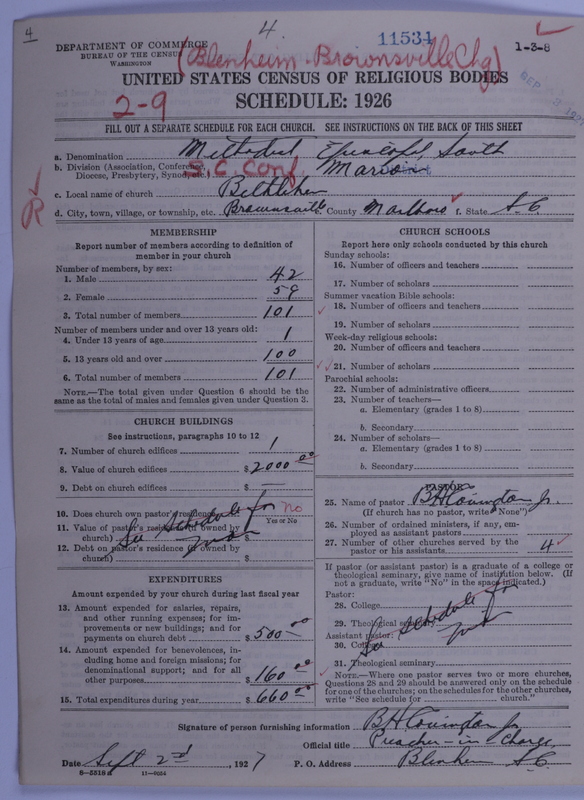 4
4.
11534
1-3-8
DEPARTMENT OF COMMERCE
BUREAU OF THE CENSUS
WASHINGTON
(Blenheim-Brownsville Chg)
UNITED STATES CENSUS OF RELIGIOUS BODIES
2-9
SCHEDULE: 1926
FILL OUT A SEPARATE SCHEDULE FOR EACH CHURCH. SEE INSTRUCTIONS ON THE BACK OF THIS SHEET
a. Denomination Methodist Episcopal South
b. Division (Association, Conference, Diocese, Presbytery, Synod, etc.) S.C. Conf. Marion
R
c. Local name of church Bethlehem
d. City, town, village, or township, etc. Brownsville County Marlboro f. State S.C.
MEMBERSHIP
Report number of members according to definition of
member in your church
Number of members, by sex:
1. Male 42
2. Female 59
3. Total number of members 101
Number of members under and over 13 years old:
4. Under 13 years of age 1
5. 13 years old and over 100
6. Total number of members 101
NOTE.—The total given under Question 6 should be the
same as the total of males and females given under Question 3.
CHURCH BUILDINGS
See instructions, paragraphs 10 to 12
7. Number of church edifices 1
8. Value of church edifices $2000 00
9. Debt on church edifices $ —
10. Does church own pastor's residence? No
Yes or No
11. Value of pastor's residence (if owned by
church) $
12. Debt on pastor's residence (if owned by
church) $
See Schedule for
EXPENDITURES
Amount expended by your church during last fiscal year
13. Amount expended for salaries, repairs,
and other running expenses; for im-
provements or new buildings; and for
payments on church debt $500 00
14. Amount expended for benevolences, in-
cluding home and foreign missions; for
denominational support; and for all
other purposes $160 00
15. Total expenditures during year $660 00
CHURCH SCHOOLS
Report here only schools conducted by this church
Sunday schools:
16. Number of officers and teachers
17. Number of scholars
Summer vacation Bible schools:
18. Number of officers and teachers
19. Number of scholars
Week-day religious schools:
20. Number of officers and teachers
21. Number of scholars
Parochial schools:
22. Number of administrative officers
23. Number of teachers—
a. Elementary (grades 1 to 8)
b. Secondary
24. Number of scholars—
a. Elementary (grades 1 to 8)
b. Secondary
PASTOR
25. Name of pastor B H Covington Jr.
(If church has no pastor, write "None")
26. Number of ordained ministers, if any, em-
ployed as assistant pastors
27. Number of other churches served by the
pastor or his assistants 4
If pastor (or assistant pastor) is a graduate of a college or
theological seminary, give name of institution below. (If
not a graduate, write "No" in the space indicated.)
Pastor:
28. College
29. Theological seminary
Assistant pastor:
30. College
31. Theological seminary
See Schedule for
NOTE.—Where one pastor serves two or more churches,
Questions 28 and 29 should be answered only on the schedule
for one of the churches; on the schedules for the other churches,
write "See schedule for church."
Signature of person furnishing information B H Covington Jr
Official title Preacher in Charge
Date Sept 2nd, 1927 P. O. Address Blenheim S.C.
8-5518a 11-9354